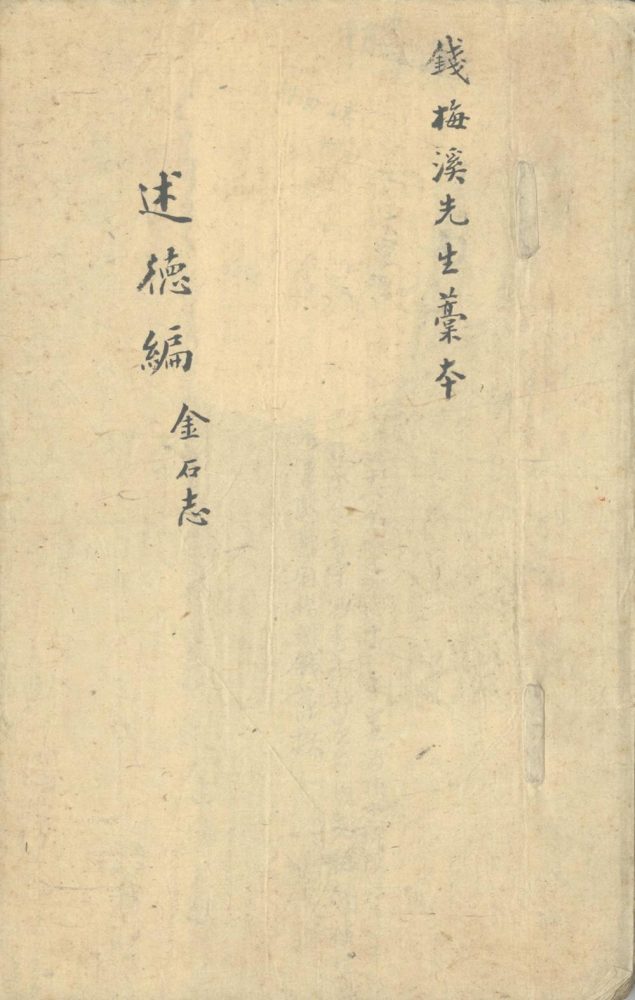 錢梅溪先生藁本
述德編 金石志